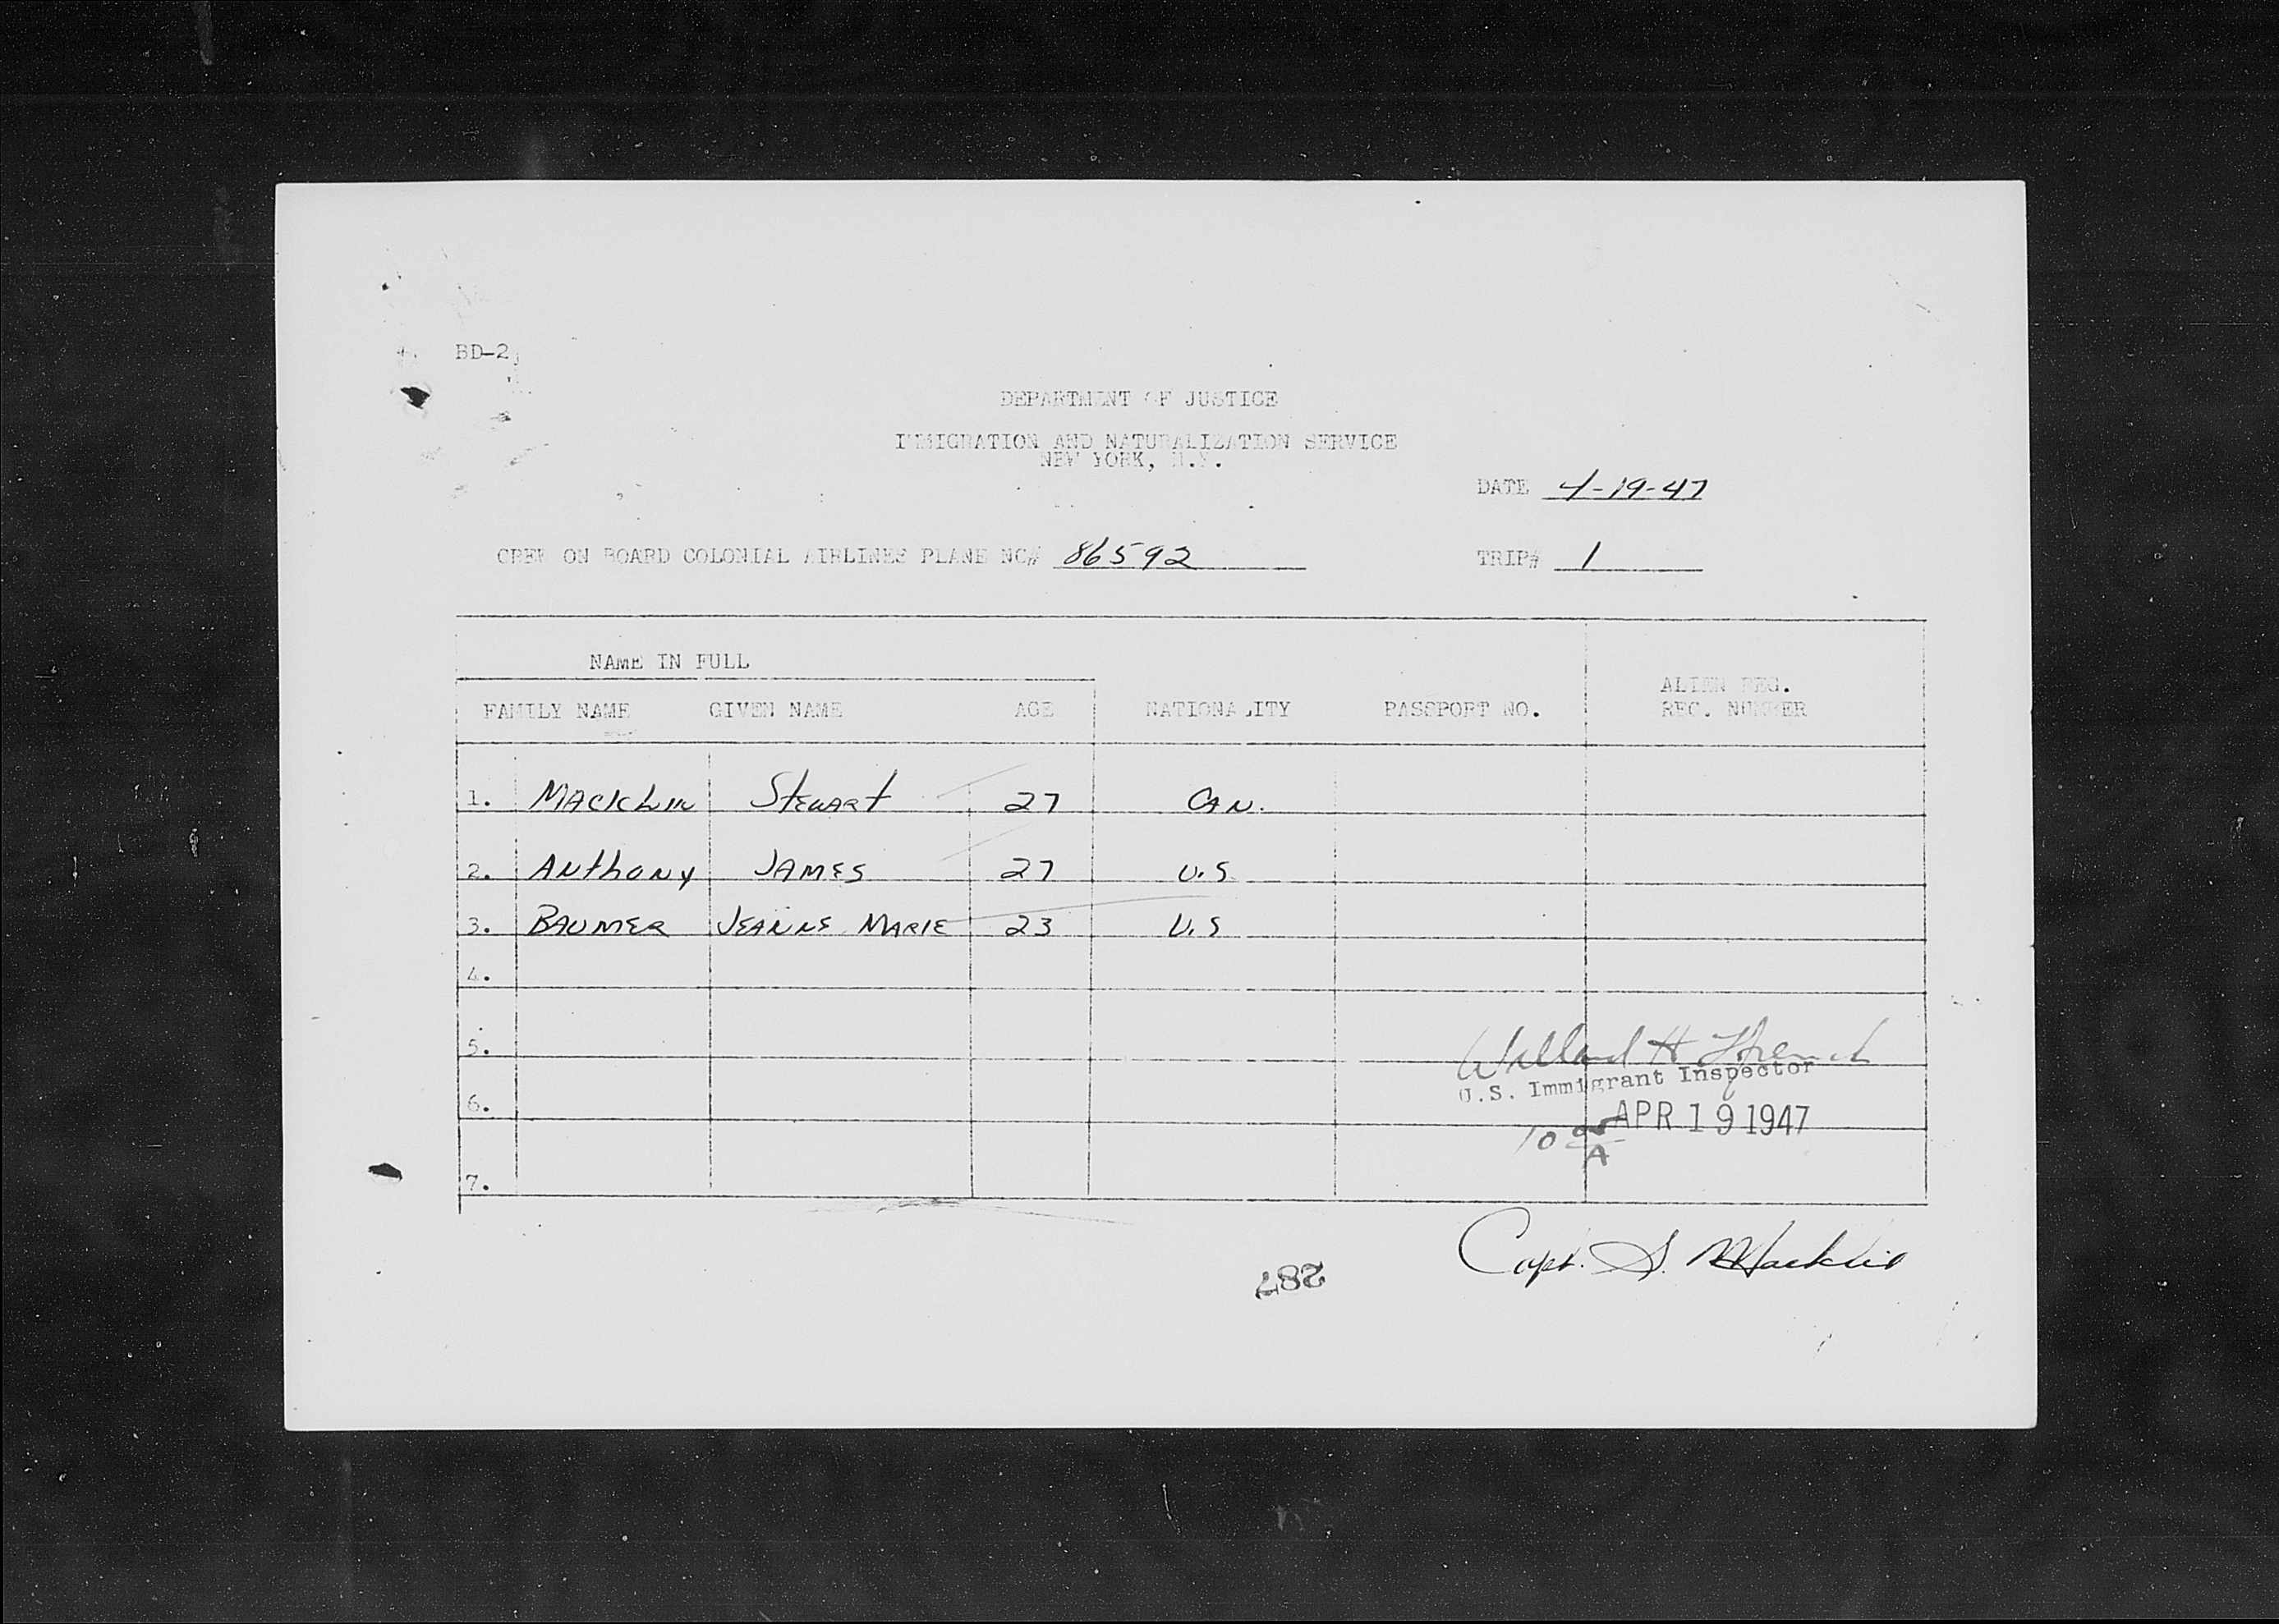 BD-2
DEPARTMENT OF JUSTICE
IMMIGRATION AND NATURALIZATION SERVICE
NEW YORK, N.Y.
DATE 4-19-47
CREW ON BOARD COLONIAL AIRLINES PLANE NC# 86592 TRIP# 1
NAME IN FULL
ALIEN REG.
FAMILY NAME GIVEN NAME AGE NATIONALITY PASSPORT NO. REC. NUMBER
1. MACKLIN Stewart 27 CAN.
2. ANthoNy JAMES 27 U.S.
3. BAUMER JEANNE MARIE 23 U.S
4.
5.
Willard H
U.S. Immigrant Inspector
6.
APR 19 1947
10 A
7.
Capt. S. Macklin
287